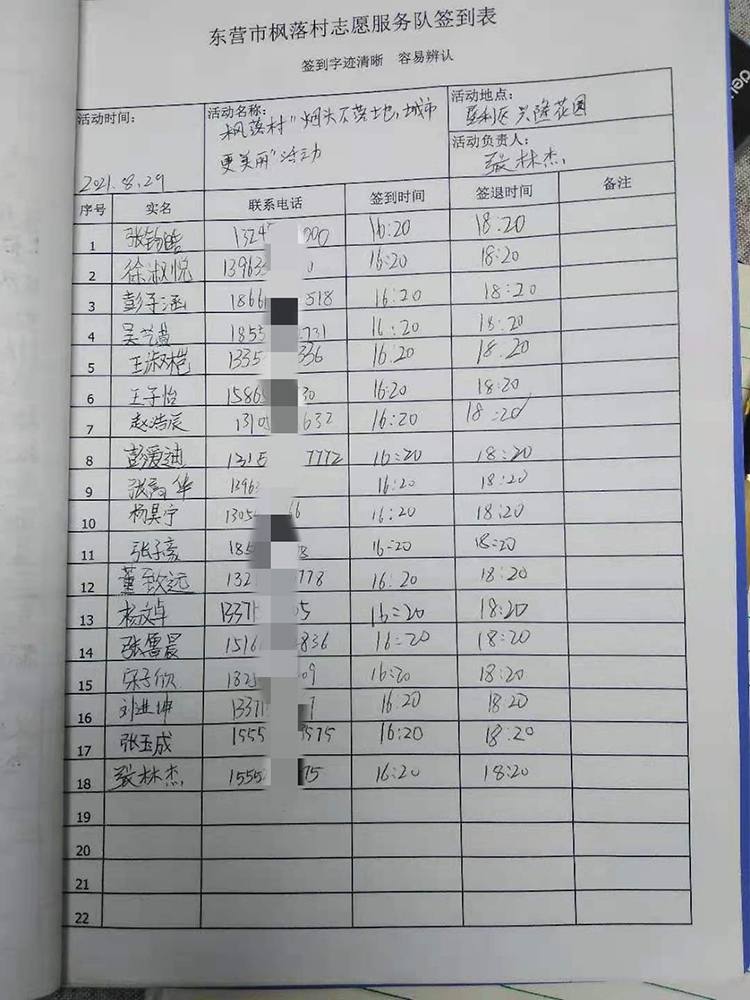 东营市枫落村志愿服务队签到表
签到字迹清晰 容易辨认
活动时间: 2021.8.29
活动名称: 枫落村"烟头不落地,城市
更美丽"活动
活动地点: 垦利区兴隆花园
活动负责人: 张林杰
序号 实名 联系电话 签到时间 签退时间 备注
1 张钧皓 1324 000 16:20 18:20
2 徐淑悦 13963 0 16:20 18:20
3 彭子涵 1866 518 16:20 18:20
4 1855 731 16:20 18:20
5 王淑楷 1335 336 16:20 18:20
6 王子怡 1586 30 16:20 18:20
7 赵浩辰 1310 632 16:20 18:20
8 彭爱迪 1315 7772 16:20 18:20
9 1396 16:20 18:20
10 杨昊宁 1305 66 16:20 18:20
11 张子豪 185 8 16:20 18:20
12 董致远 132 778 16:20 18:20
13 杨文卓 1337 05 16:20 18:20
14 张鲁晨 1516 836 16:20 18:20
15 宋子欣 1825 09 16:20 18:20
16 刘进坤 1337 16:20 18:20
17 张玉成 1555 575 16:20 18:20
18 张林杰 1555 75 16:20 18:20
19
20
21
22
deli